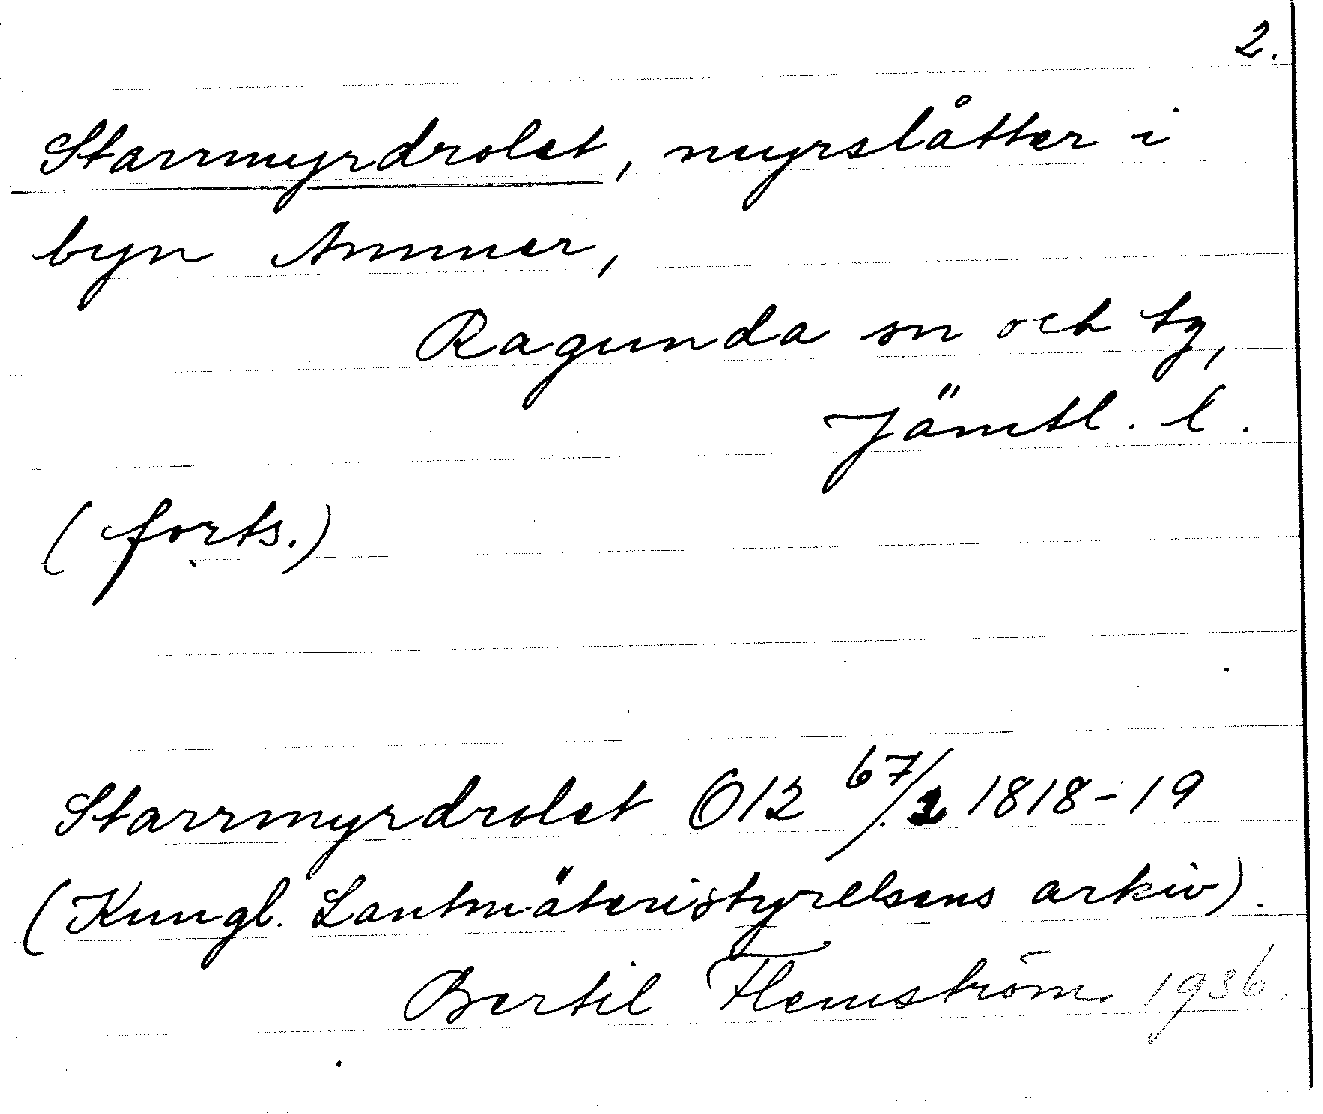 2.
Starrmyrdrolet, myrslåtter i
byn Ammer,
Ragunda sn och tg,
Jämtl. l.
(forts.)
Starrmyrdrolet O12 67/2 1818-19
(Kungl. Lantmäteristyrelsens arkiv).
Bertil Flemström 1936.